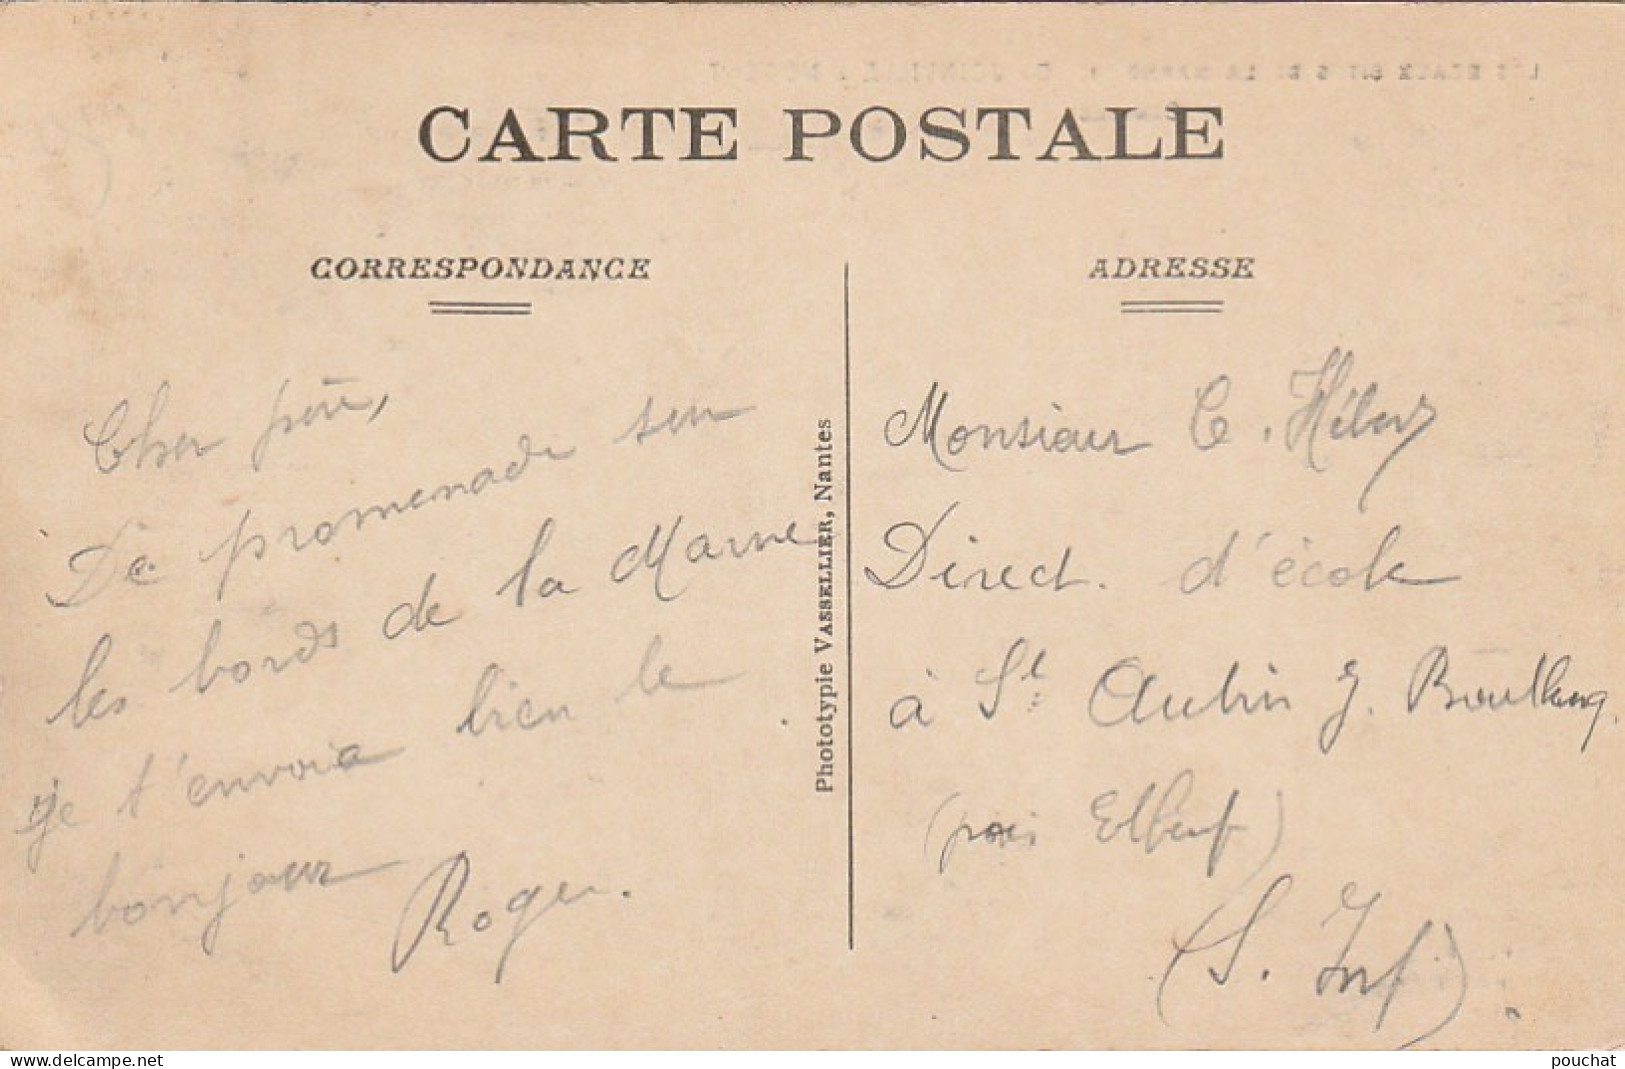 CARTE POSTALE
CORRESPONDANCE
Cher père,
De promenade sur
les bords de la Marne
je t'envoie bien le
bonjour
Roger.
Photototypie VASSELLIER, Nantes
ADRESSE
Monsieur C. Hébert
Direct. d'école
à St Aubin J. Boutleng.
(près Elbeuf)
(S. Inf)
www.delcampe.net
pouchat